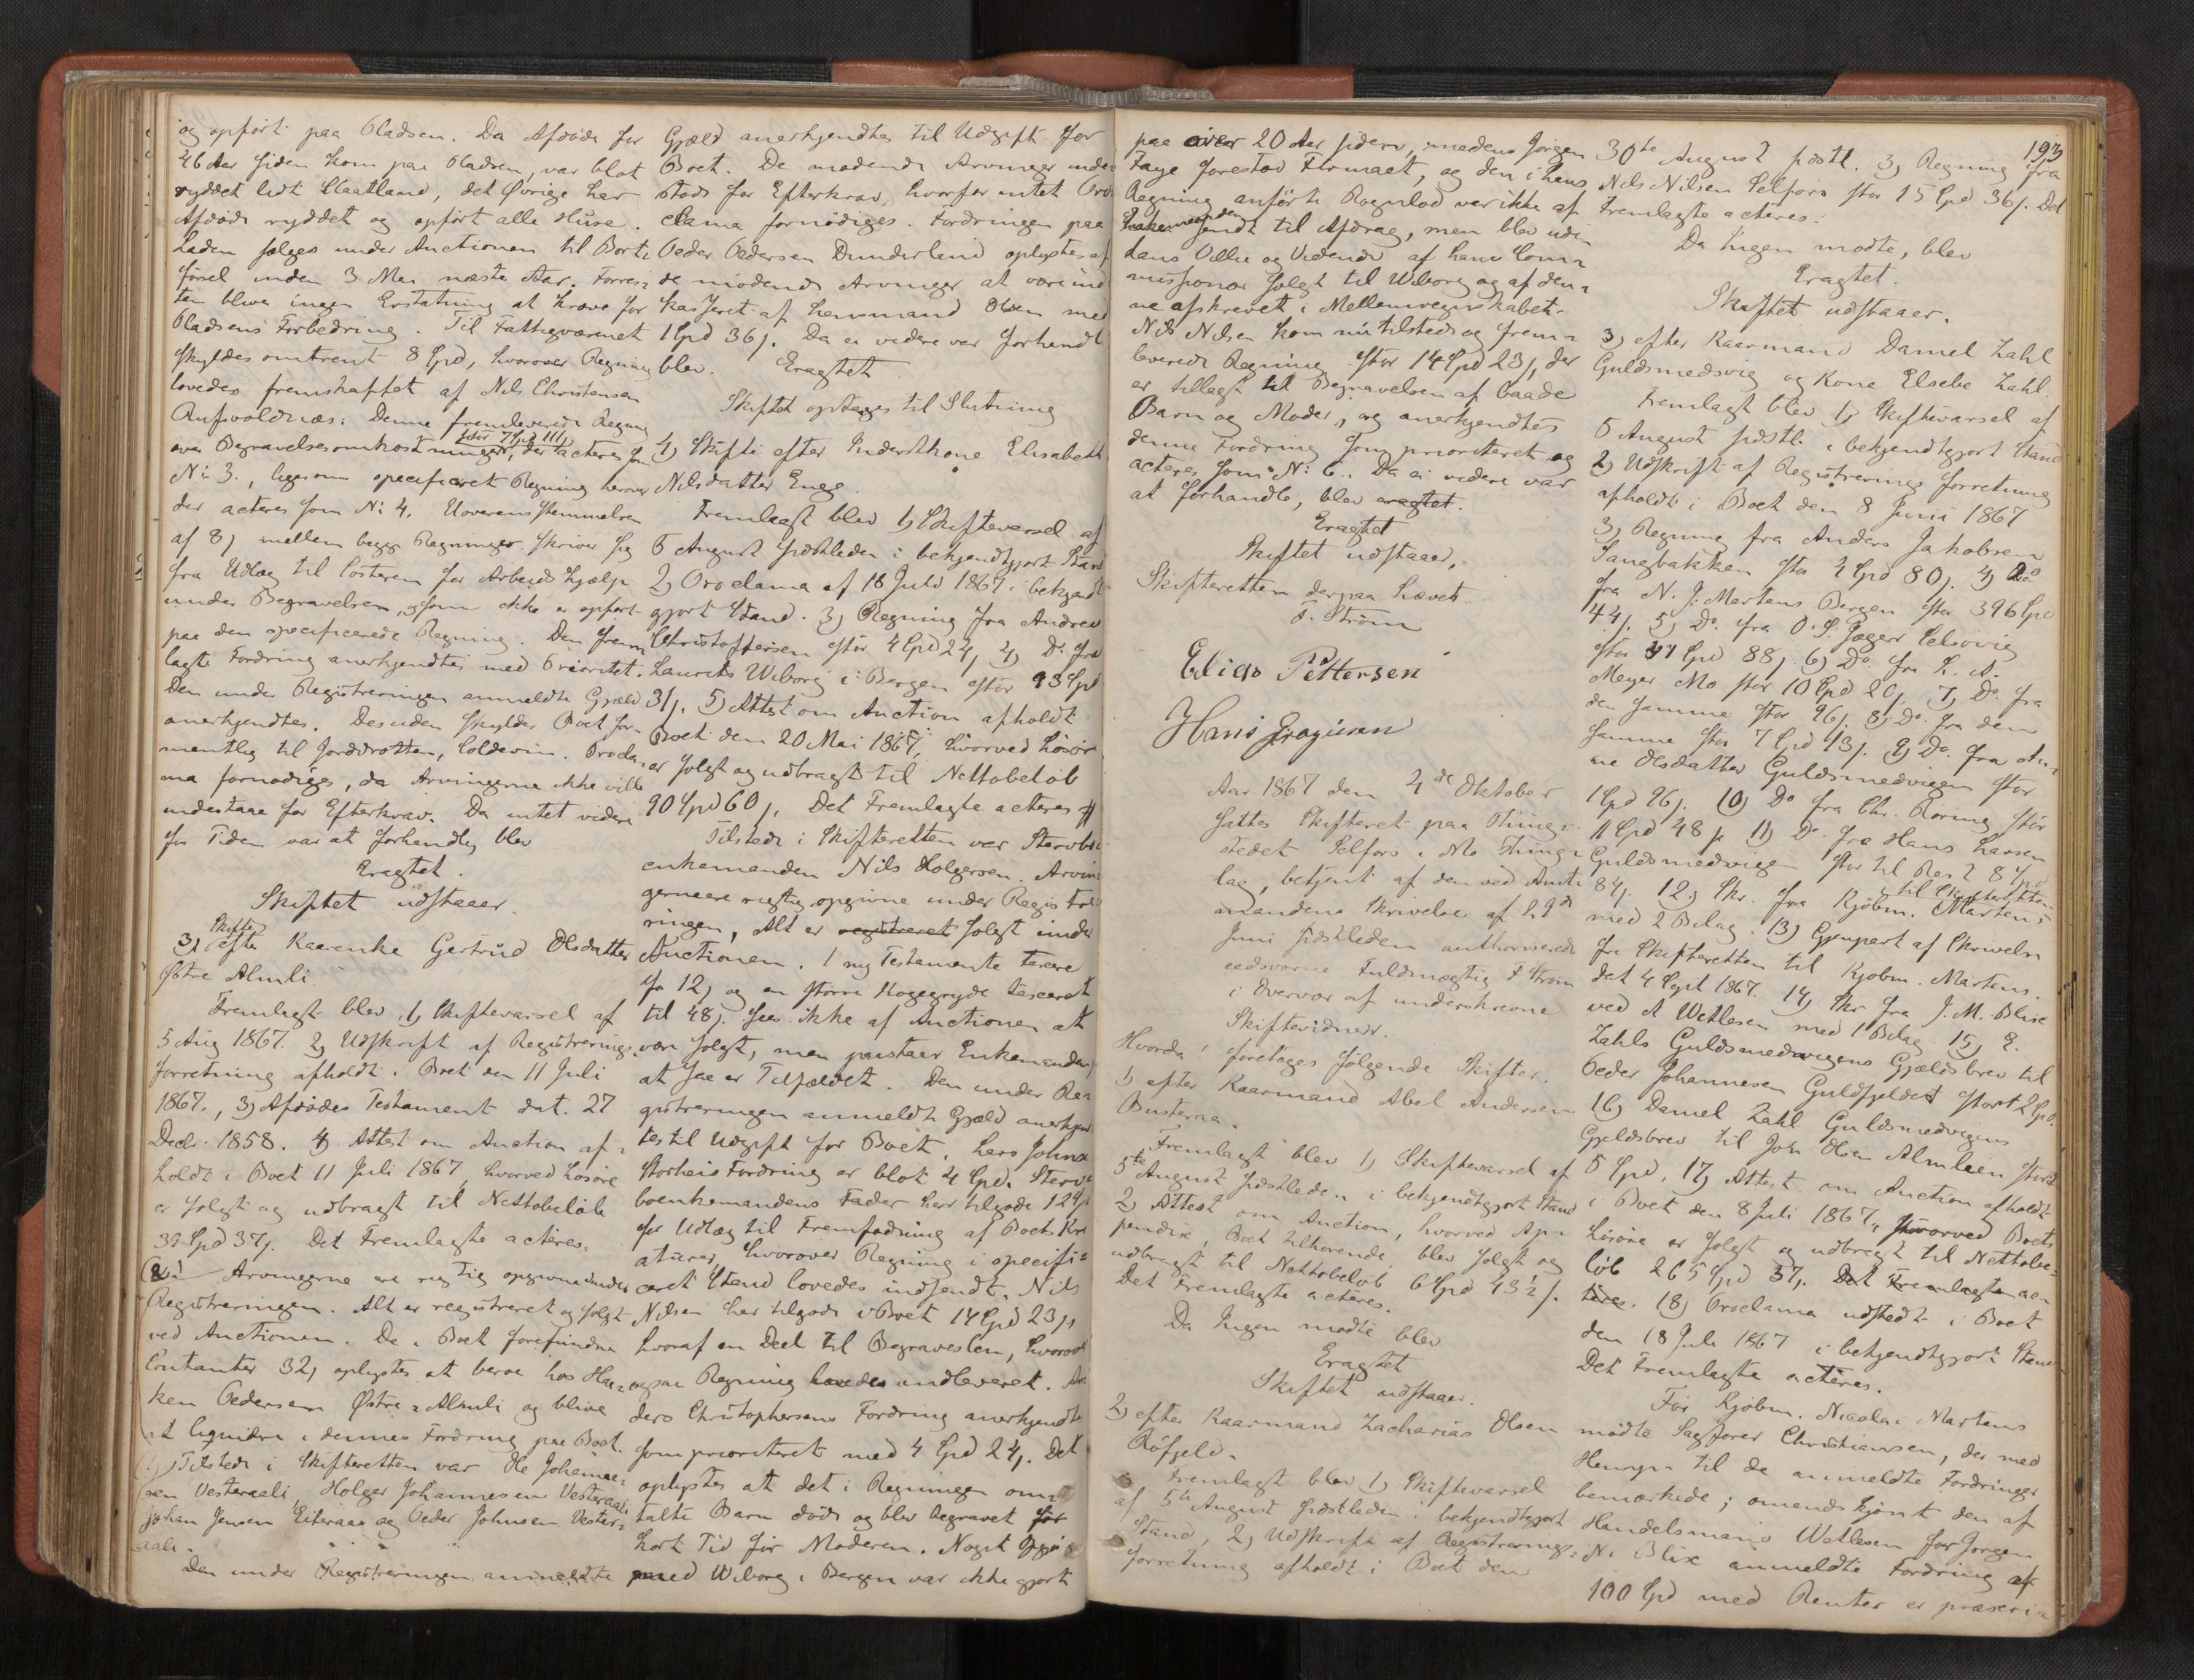 og opført paa Pladsen. Da Afdøde for
46 Aar siden kom paa Pladsen, var blot
ryddet lidt Slaatland, det Øvrige har
Afdøde ryddet og opført alle Huse.
Laden sælges under Auctionen til Bort-
førsel inden 3 Mai næste Aar. Forres-
ten bliver ingen Erstatning at kræve for
Pladsens Forbedring. Til Fattigvæsenet
skyldes omtrent 8 Spd, hvorover Regning
lovedes fremskaffet af Nils Christensen
Aufsvoldnæs: Denne fremleverede Regning
over Begravelsesomkostninger, stor 7 Spd 111 der acteres som
N: 3., ligesom specificeret Regning herover
der acteres som N: 4. Uoverensstemmelsen
af 8 mellem begge Regninger skriver sig
fra Udlæg til for Arbeidshjælp
under Begravelsen, som ikke er opført
paa den specificerede Regning. Den frem-
lagte Fordring anerkjendtes med Prioritet.
Den under Registreringen anmeldte Gjæld
anerkjendtes. Desuden skylder Boet for-
mentlig til Jorddrotten, Coldevin. Procla-
ma fornødiges, da Arvingerne ikke ville
indestaae for Efterkrav. Da intet videre
for Tiden var at forhandle, blev
Eragtet.
Skiftet udstaaer.
3) Skifte efter Kaarenke Gertrud Olsdatter
Østre Almli
Fremlagt blev 1) Skiftevarsel af
5 Aug 1867. 2) Udskrift af Registrerings-
forretning afholdt i Boet den 11 Juli
1867., 3) Afdødes Testament dat. 27
Decbr. 1858. 4) Attest om Auction af-
holdt i Boet 11 Juli 1867, hvorved Løsøre
er solgt og udbragt til Nettobeløb
39 Spd 37. Det Fremlagte acteres.
Arvingerne ere rigtig opgivne under
Registreringen. Alt er registreret og solgt
ved Auctionen. De i Boet forefundne
Contanter 32 oplystes at beroe hos Haa-
ken Pedersen Østre Almli og blive
at liquidere i dennes Fordring paa Boet.
Tilstede i Skifteretten var Ole Johanne-
sen Vesteraali, Holger Johannesen Vesteraali
Johan Jensen Eiteraae og Peder Johnsen Vester-
aali.
Den under Registreringen anmeldte
Gjæld anerkjendtes til Udgift for
Boet. De mødende Arvinger inde-
stode for Efterkrav, hvorfor intet Pro-
clama fornødiges. Fordringen paa
Peder Pedersen Dunderland oplystes af
de mødende Arvinger at være ind-
kasseret af Lensmand Olsen med
1 Spd 36. Da ei videre var forhandl
blev. Eragtet
Skiftet optages til Slutning
4) Skifte efter Inderstkone Elisabeth
Nilsdatter Enge.
Fremlagt blev 1) Skiftevarsel af
5 August sidstleden i bekjendtgjort Stand
2) Proclama af 18 Juli 1867 i bekjendt-
gjort Stand. 3) Regning fra Andreas
Christoffersen stor 4 Spd 24, 4) Do fra
Laurits Wiborg i Bergen stor 93 Spd
31. 5) Attest om Auction afholdt i
Boet den 20 Mai 1867, hvorved Løsøre
er solgt og udbragt til Nettobeløb
90 Spd 60. Det Fremlagte acteres
Tilstede i Skifteretten var Stervbo-
enkemanden Nils Holgersen. Arvin-
gerne ere rigtig opgivne under Registre-
ringen, Alt er registreret solgt under
Auctionen. 1 ny Testamente taxeret
for 12 og en større Kogegryde taxeret
til 48. sees ikke af Auctionen at
være solgt, men paastaaer Enkemanden
at saa er Tilfældet. Den under Re-
gistreringen anmeldte Gjæld anerkjend-
tes til Udgift for Boet. Lars Johns
Storheis Fordring er blot 4 Spd. Sterv-
boenkemandens Fader har tilgode 12 Spd
for Udlæg til Fremfødning af Boets Kre-
aturer, hvorover Regning i specifi-
ceret Stand lovedes indsendt. Nils
Nilsen har tilgode i Boet 14 Spd 23,
hvoraf en Deel til Begravelsen, hvorover
ogsaa Regning lovedes indleveret. An-
ders Christophersens Fordring anerkjendtes
som prioriteret med 4 Spd 24. Det
oplystes at det i Regningen om-
talte Barn døde og blev begravet
kort Tid før Moderen. Noget Opgjør
med Wiborg i Bergen var ikke gjort
193
paa over 20 Aar siden, medens Jørgen
Fage forestod Firmaet, og den i hans
Regning anførte Rognlod var ikke af
Enkemanden sendt til Afdrag, men blev uden
hans Villie og Vidende af hans Com-
missionær solgt til Wiborg og af den-
ne afskrevet i Mellemregnskabet.
Nils Nilsen kom nu tilstede og frem-
leverede Regning stor 14 Spd 23, der
er tillagt til Begravelsen af baade
Barn og Moder, og anerkjendtes
denne Fordring som prioriteret og
acteres som N: 6. Da ei videre var
at forhandle, blev eragtet.
Eragtet
Skiftet udstaaer.
Skifteretten derpaa hævet.
F. Strøm
Elias Pettersen
Hans Jørgensen
Aar 1867 den 4de Oktober
sattes Skifteret paa Thing-
stedet Selfors i Mo Thing-
lag, betjent af den ved Amt-
mandens Skrivelse af 29de
Juni sidstleden authoriserede
eedsvorne Fuldmægtig F Strøm
i Overvær af underskrevne
Skiftevidner.
Hvorda foretoges følgende Skifter.
1) efter Kaarmand Abel Andersen
Busteraa.
Fremlagt blev 1) Skiftevarsel af
5te August sidstleden i bekjendtgjort Stand
2) Attest om Auction, hvorved Ap-
pendix, Boet tilhørende, blev solgt og
udbragt til Nettobeløb 6 Spd 43½.
Det Fremlagte acteres.
Da Ingen mødte blev
Eragtet
Skiftet udstaaer.
2) efter Kaarmand Zacharias Olsen
Røfjeld.
Fremlagt blev 1) Skiftevarsel
af 5te August sidstleden i bekjendtgjort
Stand, 2) Udskrift af Registrerings-
forretning afholdt i Boet den
30te August sidstl. 3) Regning fra
Nils Nilsen Selfors stor 15 Spd 36. Det
Fremlagte acteres.
Da Ingen mødte, blev
Eragtet.
Skiftet udstaaer.
3) efter Kaarmand Daniel Zahl
Guldsmedsvig og Kone Elsebe Zahl.
Fremlagt blev 1) Skiftevarsel af
5 August sidstl. i bekjendtgjort Stand
2) Udskrift af Registrerings forretning
afholdt i Boet den 8 Juni 1867
3) Regning fra Anders Jakobsen
Langbakken stor 4 Spd 80. 4) Do
fra N. J. Martens Bergen stor 396 Spd
44. 5) Do fra O. S. Jæger
stor 37 Spd 88. 6) Do fra L. A.
Meyer Mo stor 10 Spd 20. 7) Do fra
den samme stor 96. 8) Do fra den
samme stor 7 Spd 13. 9) Do fra An-
ne Olsdatter Guldsmedvigen stor
1 Spd 96. 10) Do fra Chr. Røring stor
11 Spd 48 11) Do fra Hans Larsen
Guldsmedvigen stor til Rest 8 Spd
84. 12) Skr. fra Kjøbm. Martens til Skifteretten
med 2 Bilag. 13) Gjenpart af Skrivelse
fra Skifteretten til Kjøbm. Martens.
dat 4 Sept 1867. 14) Skr fra J. M. Blix
ved A Wetlesen med 1 Bilag. 15) E.
Zahls Guldsmedvigens Gjældsbrev til
Peder Johannesen Guldfjeldet stort 2 Spd.
16) Daniel Zahl Guldsmedvigens
Gjeldsbrev til John Olsen Almlien stort
5 Spd, 17) Attest om Auction afholdt
i Boet den 8 Juli 1867, hvorved Boets
Løsøre er solgt og udbragt til Nettobe-
løb 265 Spd 37. Det Fremlagte ac-
teres. 18) Proclama udstedt i Boet
den 18 Juli 1867 i bekjendtgjort Stand
Det Fremlagte acteres.
For Kjøbm. Nicolai Martens
mødte Sagfører Christiansen, der med
Hensyn til de anmeldte Fordringer
bemærkede; omendskjønt den af
Handelsmand Wetlesen for Jørgen
N. Blix anmeldte Fordring af
100 Spd med Renter er præscri-